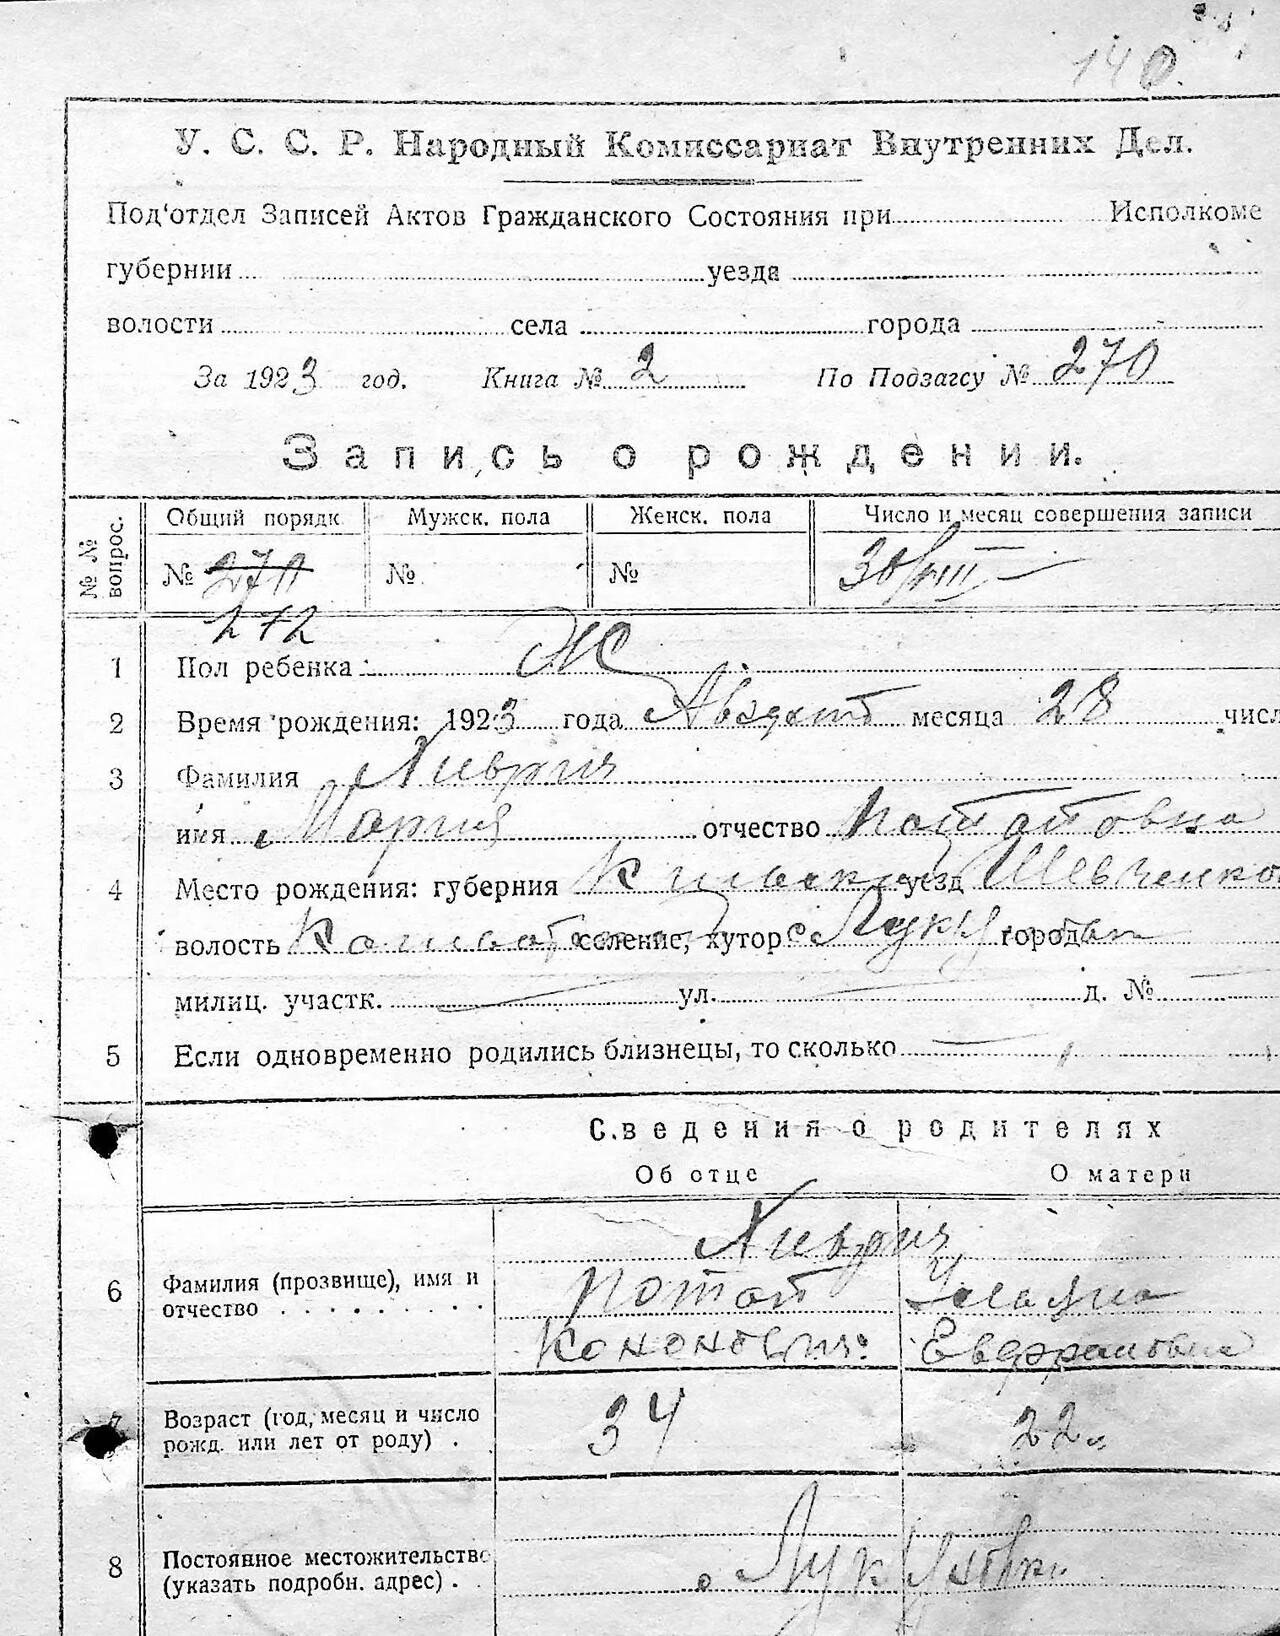 140.
У. С. С. Р. Народный Комиссариат Внутренних Дел.
Под'отдел Записей Актов Гражданского Состояния при Исполкоме
губернии уезда
волости села города
За 1923 год. Книга № 2 По Подзагсу № 270
Запись о рождении.
№ № вопрос. Общий порядк Мужск. пола Женск. пола Число и месяц совершения записи
№ 270 № № 30/VIII
272
1 Пол ребенка Ж
2 Время рождения: 1923 года Август месяца 28 числ
3 Фамилия
имя Мария отчество Потаповна
4 Место рождения: губерния уезд Шевченко
волость селение, хутор город
милиц. участк. ул. д. №
5 Если одновременно родились близнецы, то сколько
Сведения о родителях
Об отце О матери
6 Фамилия (прозвище), имя и
отчество Потап
Кононович
7 Возраст (год, месяц и число
рожд. или лет от роду) . 34 22
8 Постоянное местожительство
(указать подробн. адрес) .